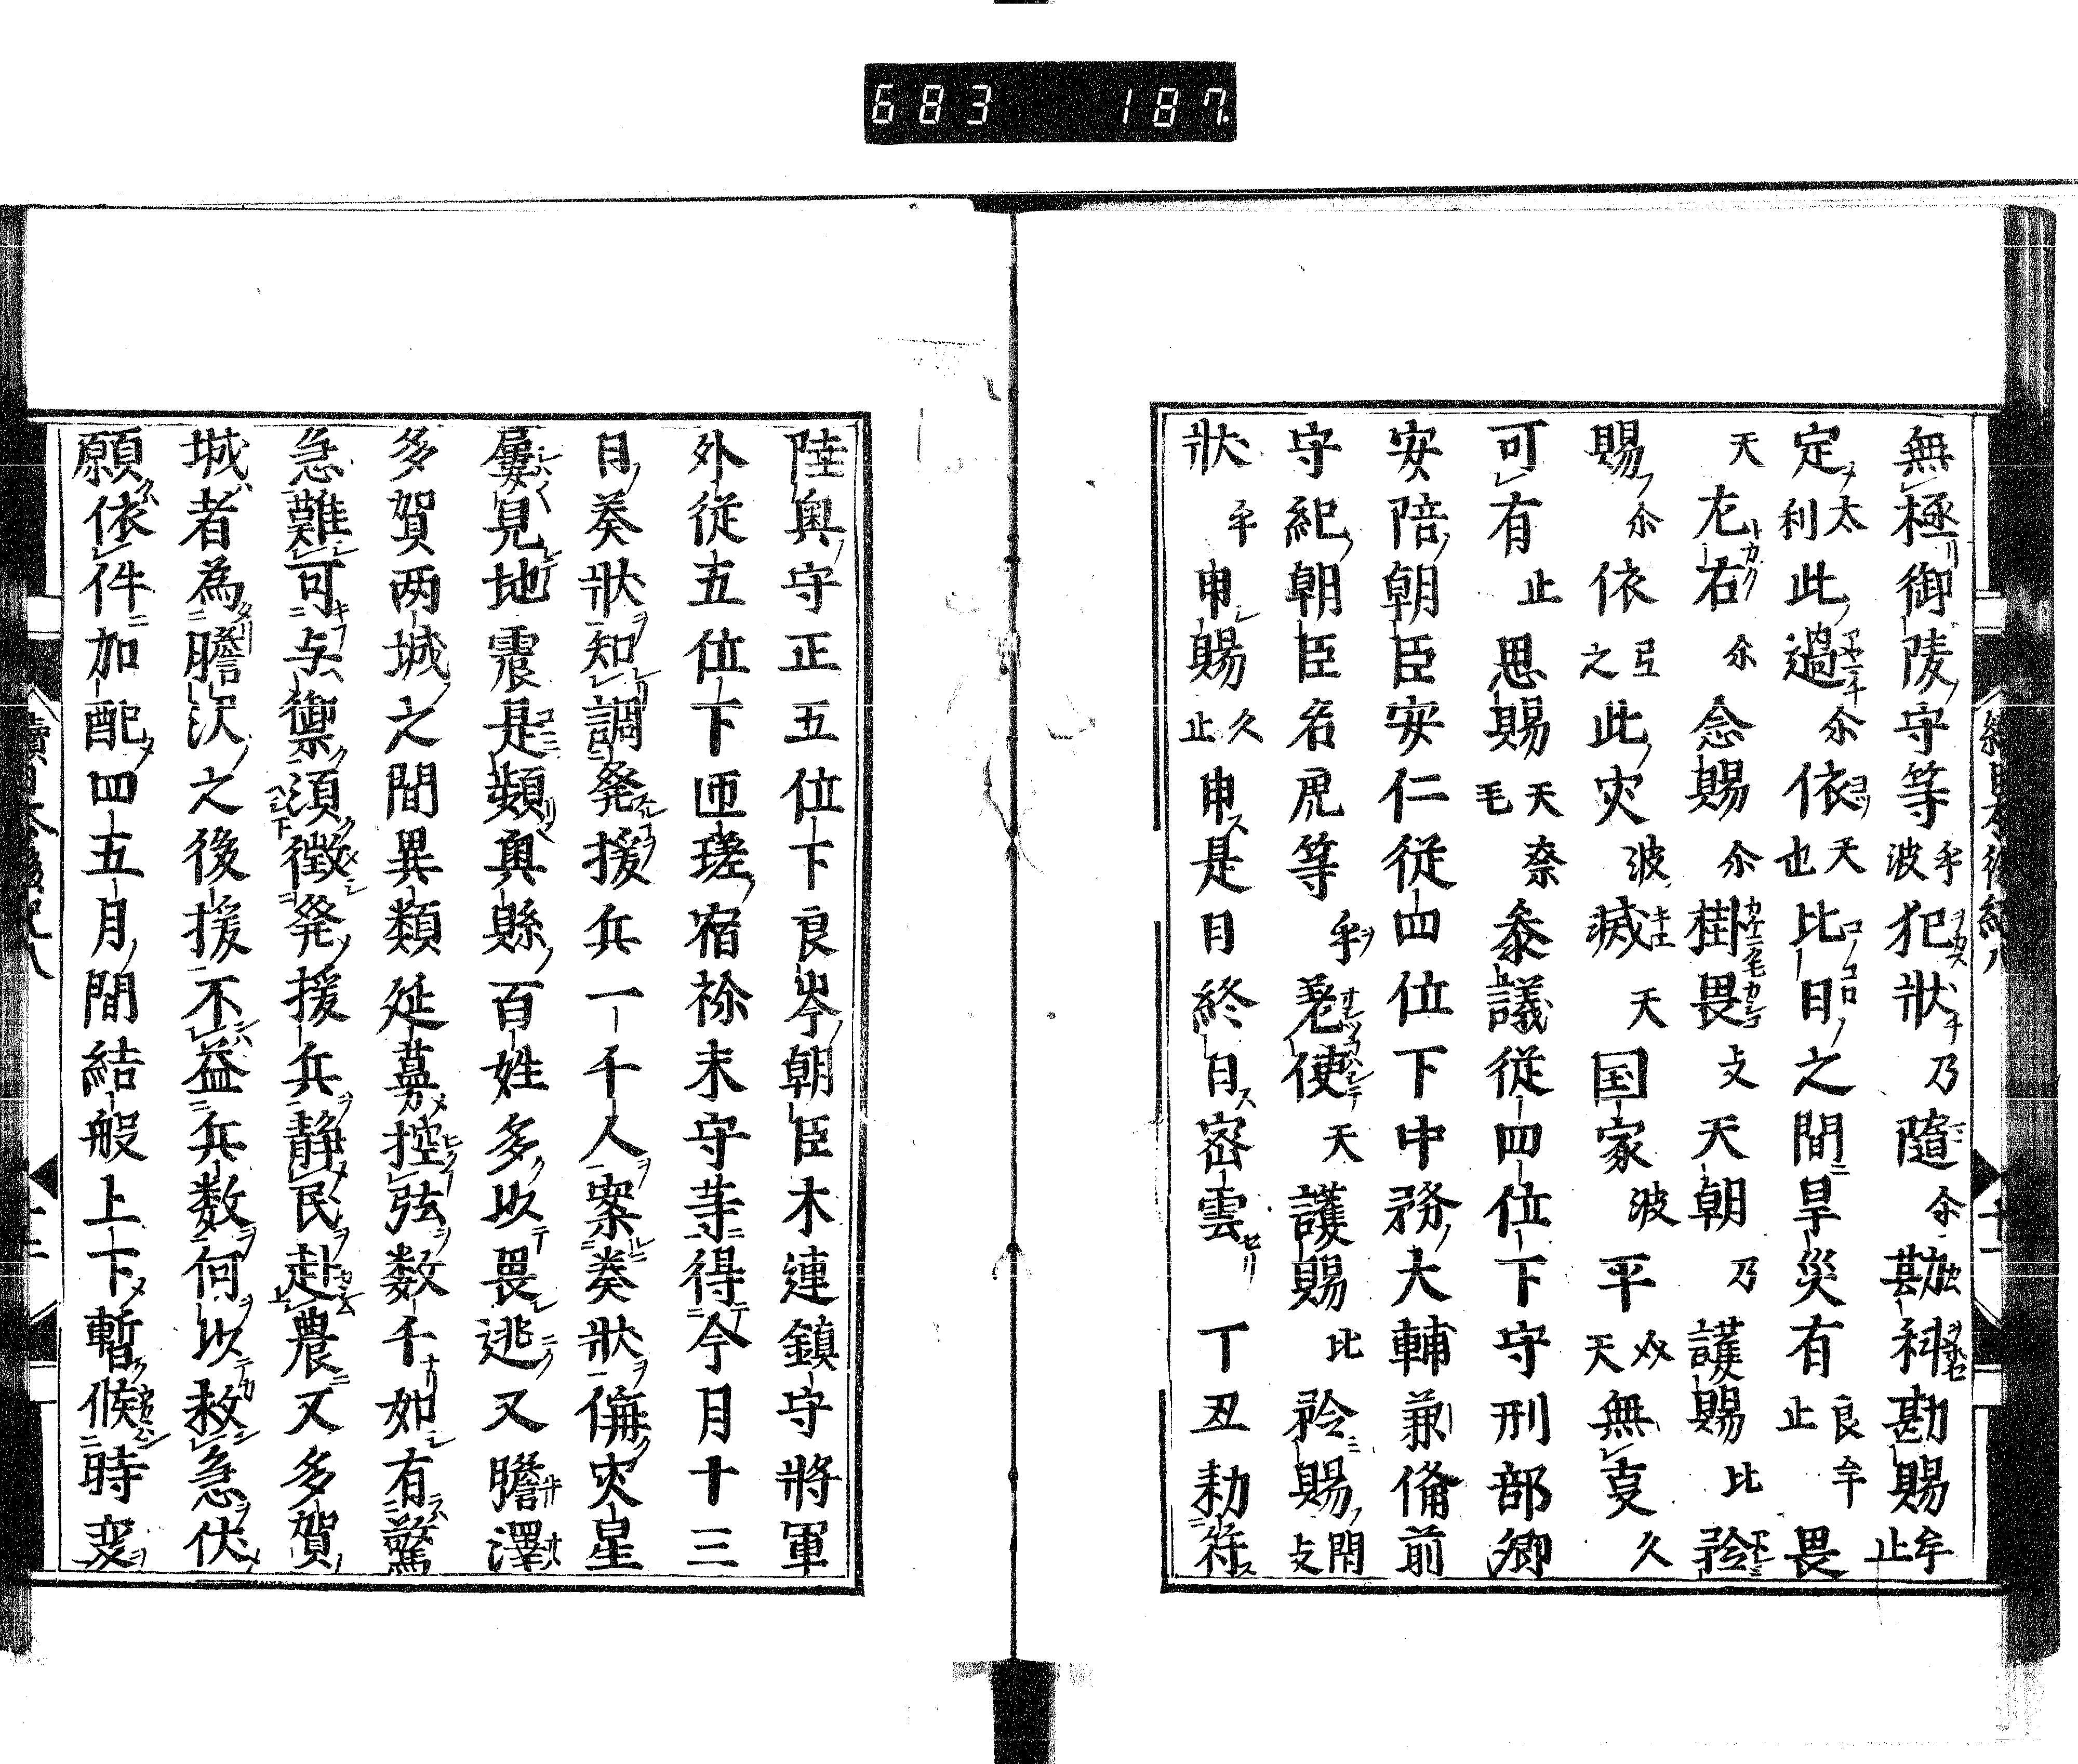 683 187
無極御陵守等乎波犯狀乃隨尒勘科勘賜牟止
定太利此過尒依天也比日之間旱災有良牟止畏
天左右尒念賜尒掛畏支天朝乃護賜比矜
賜尒依弖之此灾波滅天国家波平久天無㕝久
可有止思賜天毛奈參議従四位下守刑部卿
安陪朝臣安仁従四位下中務大輔兼備前
守紀朝臣名虎等乎差使天護賜比矜賜閇支
狀乎申賜久止申是日終日密雲丁丑勑符
陸奥守正五位下良岑朝臣木連鎮守将軍
外従五位下匝瑳宿祢末守等得今月十三
日奏狀知調発援兵一千人案奏狀偁灾星
屢見地震是頻奥縣百姓多以畏逃又膽澤
多賀两城之間異類延蔓控弦数千如有驚
急難可与禦須徴発援兵静民赴農又多賀
城者為膽沢之後援不益兵数何以救急伏
願依件加配四五月間結般上下暫候時変